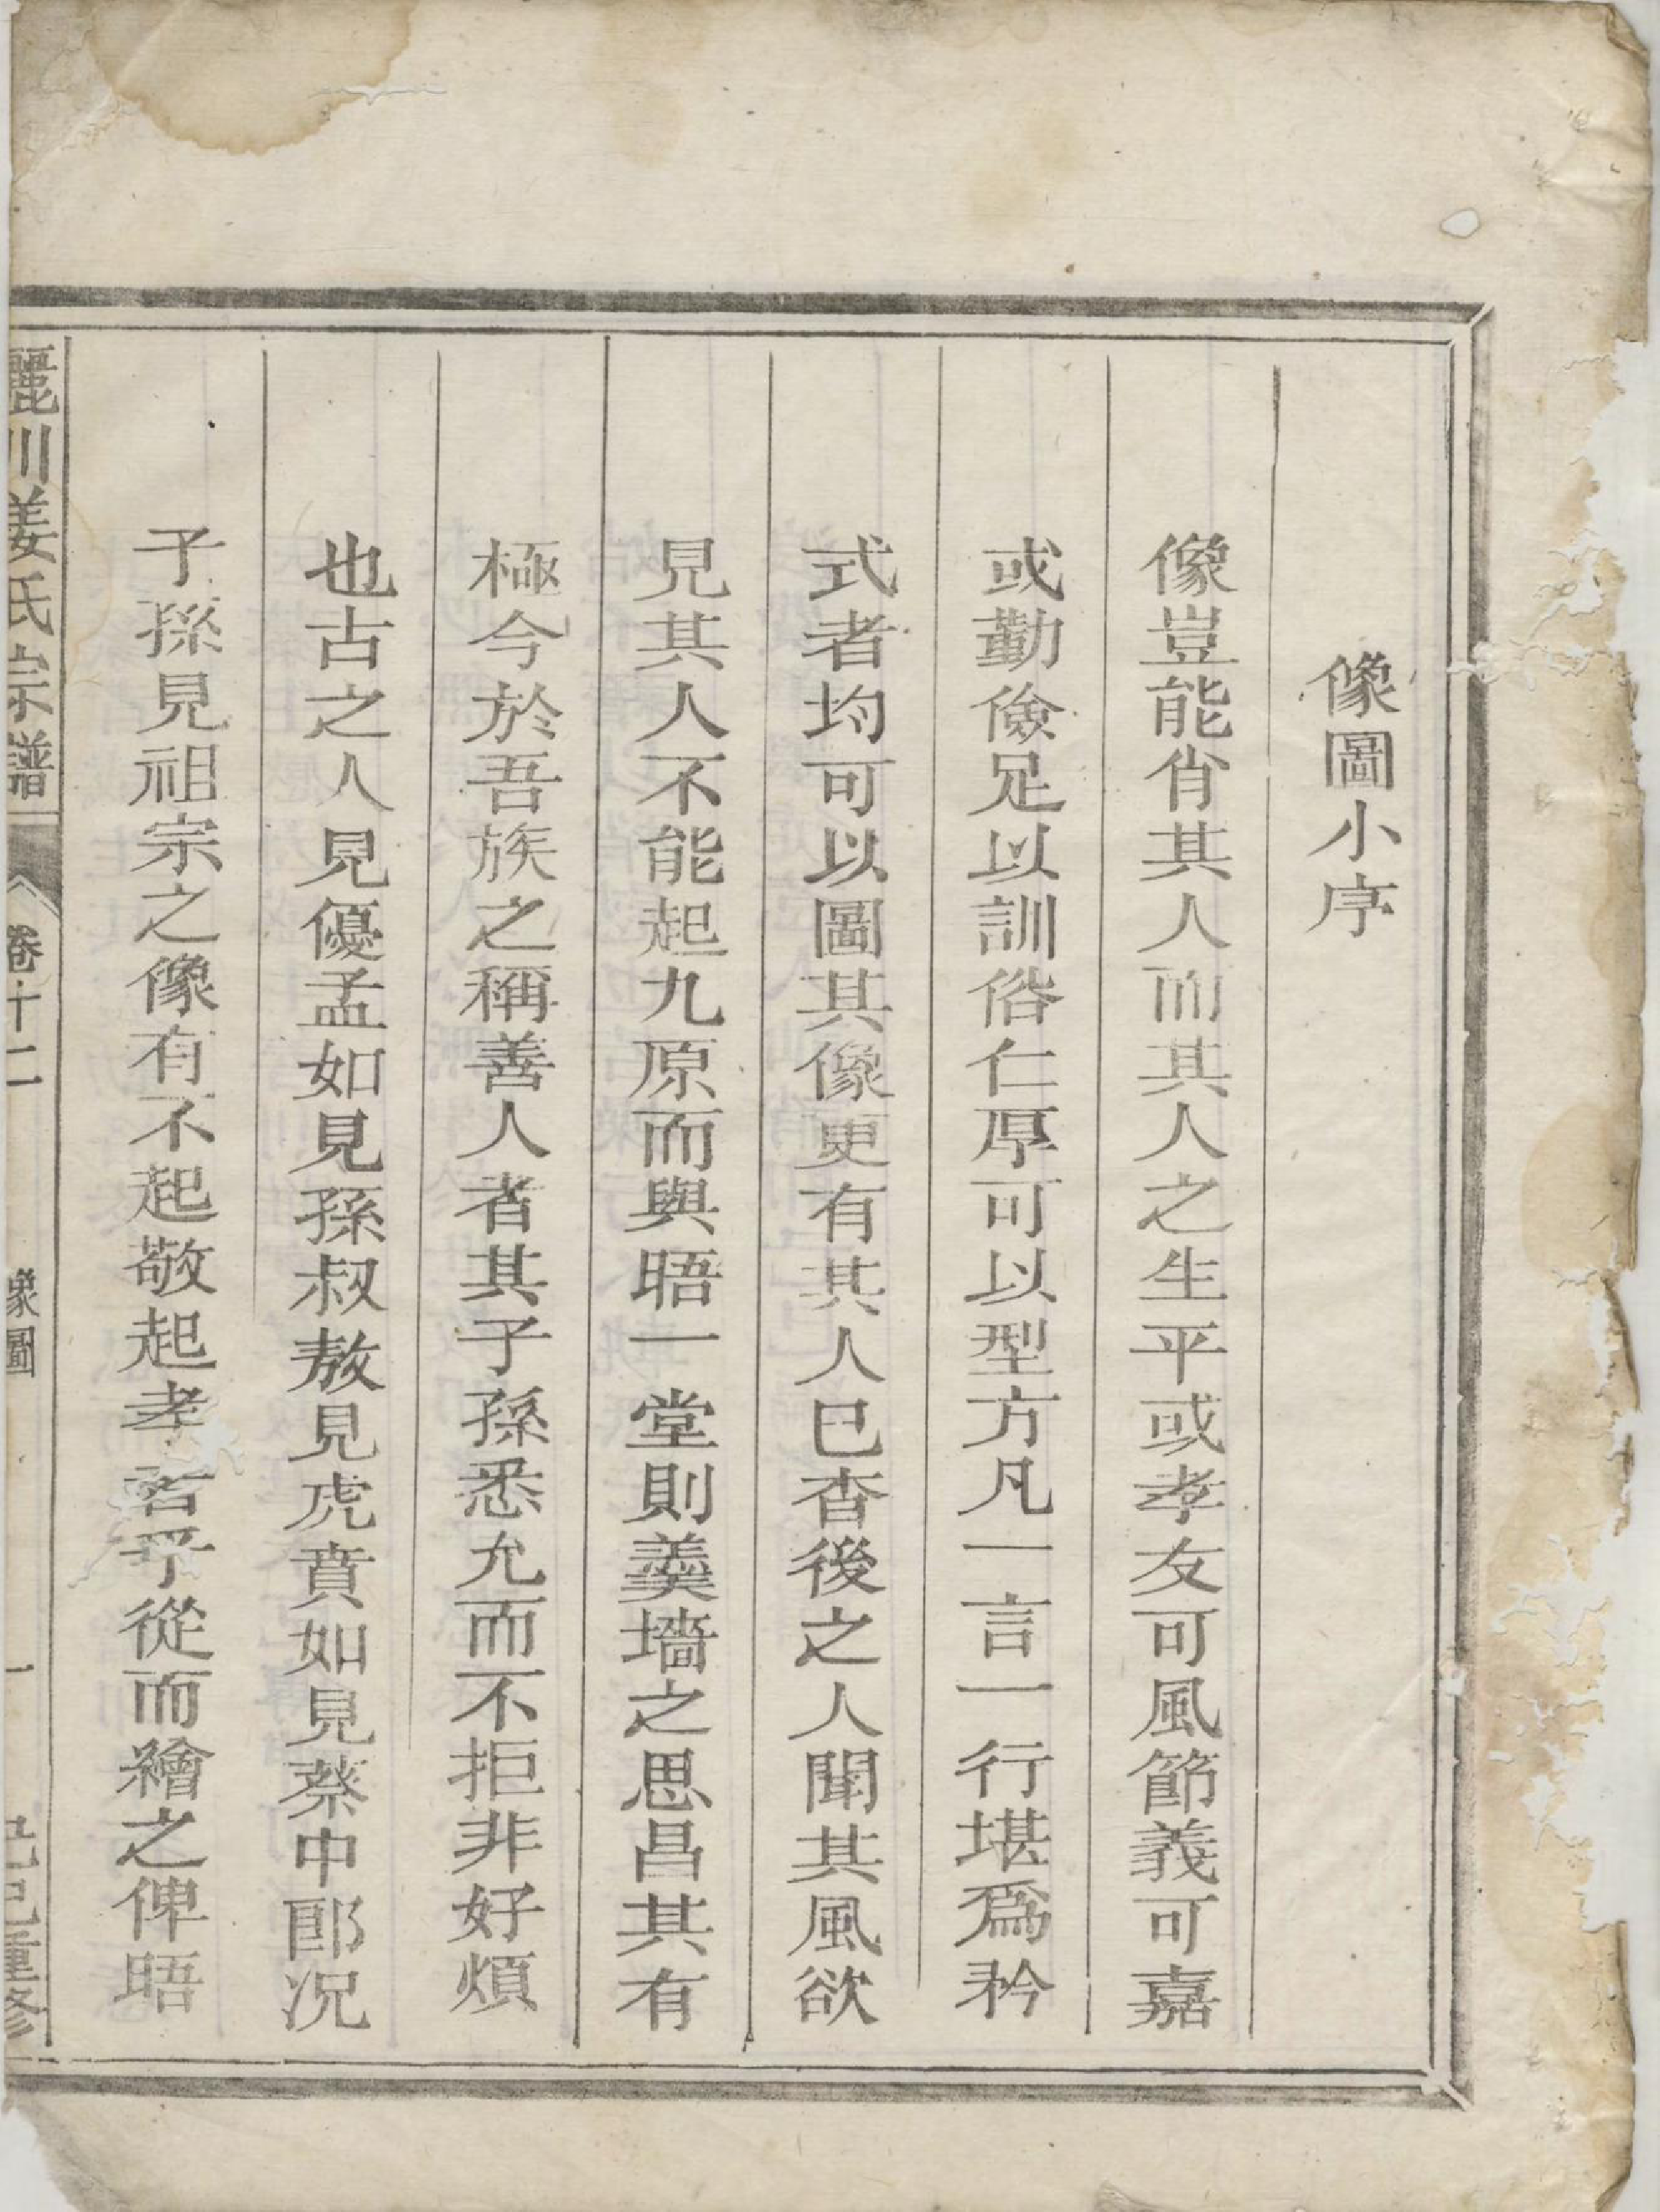 像圖小序
像豈能肖其人而其人之生平或孝友可風節義可嘉
或勤儉足以訓俗仁厚可以型方凡一言一行堪爲矜
式者均可以圖其像更有其人已杳後之人聞其風欲
見其人不能起九原而與晤一堂則羹墻之思曷其有
極今於吾族之稱善人者其子孫悉允而不拒非好煩
也古之人見優孟如見孫叔敖見虎賁如見蔡中郎况
子孫見祖宗之像有不起敬起孝者乎從而繪之俾晤
麗川姜氏宗譜 卷十二 像圖 一 己巳重修